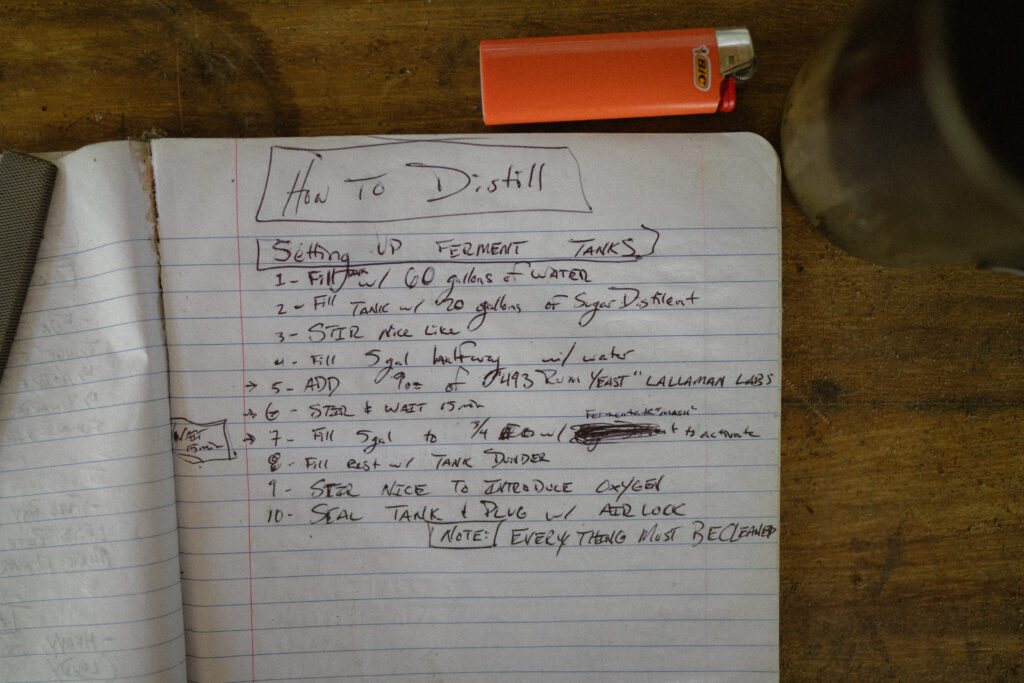 BIC
How To Distill
Setting UP FERMENT TANKS
1 - Fill TANK w/ 60 gallons of WATER
2 - Fill TANK w/ 20 gallons of Sugar Distilent
3 - STIR Nice Like
4 - Fill 5gal halfway w/ water
→ 5 - ADD 9oz of 493 Rum YEAST" LALLAMAN LABS
→ 6 - STIR & WAIT 15 min
Fermentank "mash"
WAIT 15 min → 7 - Fill 5gal to 3/4 w/ to activate
8 - Fill Rest w/ TANK DUNDER
9 - STIR NICE TO INTRODUCE OXYGEN
10 - SEAL TANK & PLUG w/ AIR LOCK
NOTE: EVERY THING MUST BE CLEANED